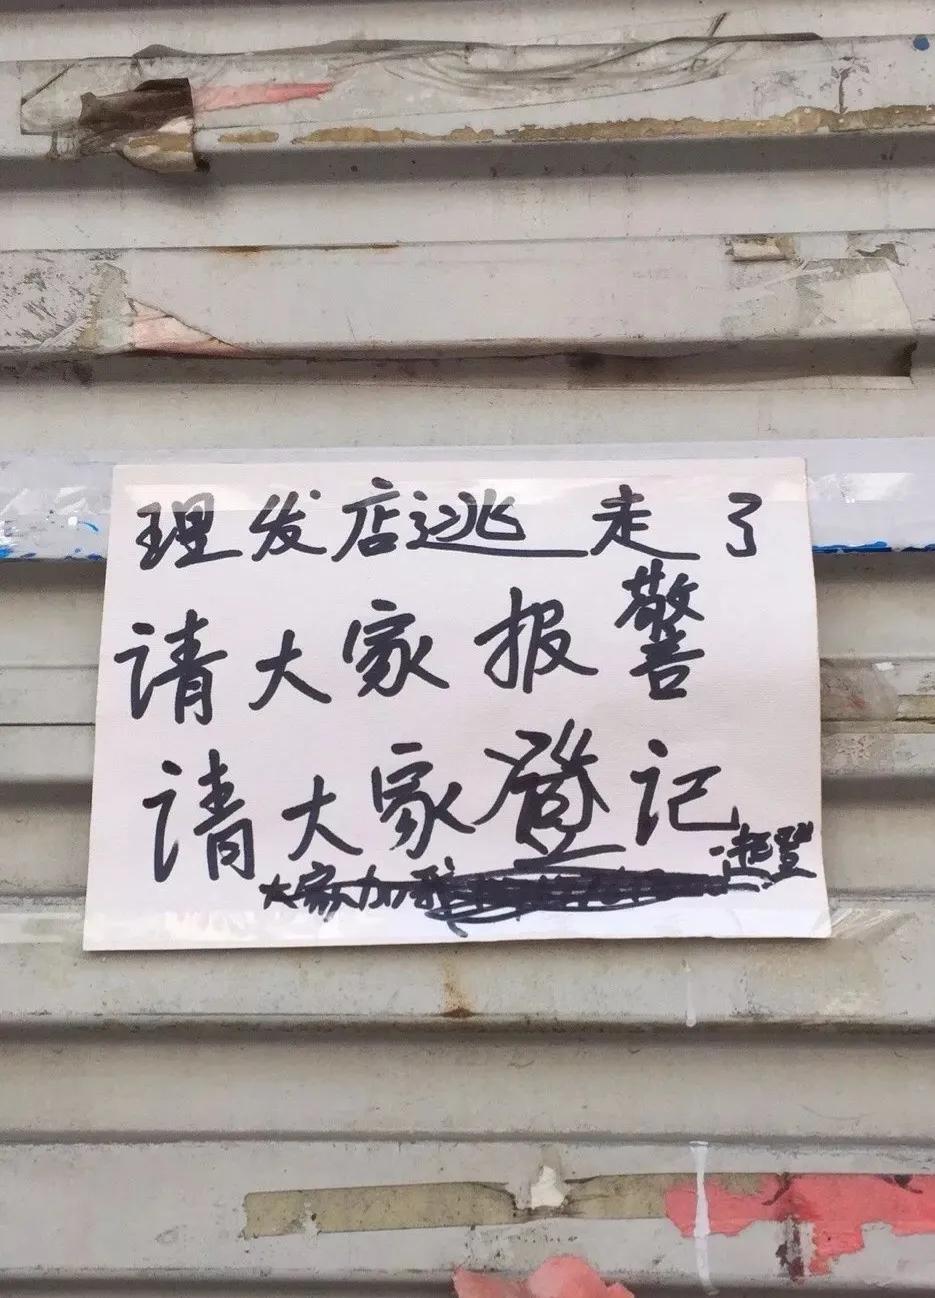 理发店逃走了
请大家报警
请大家登记
大家加我